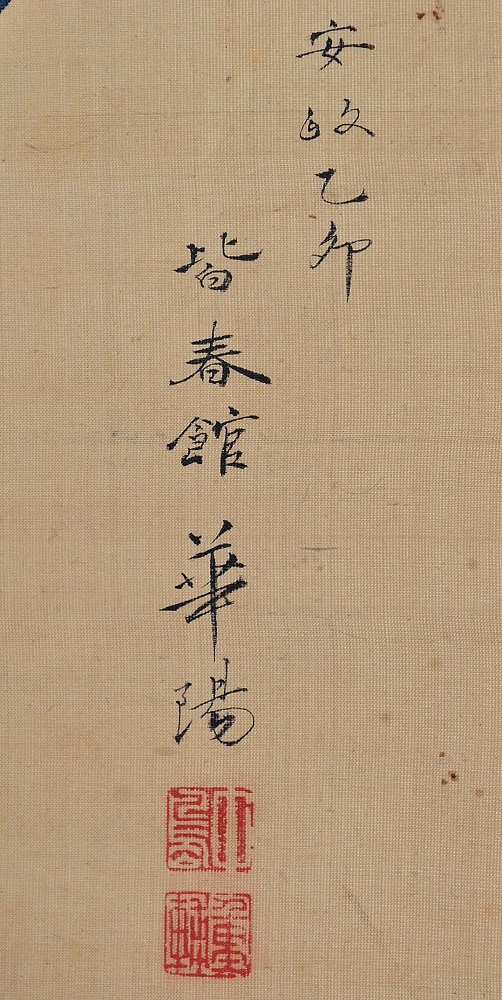 安政乙卯
皆春館 華陽